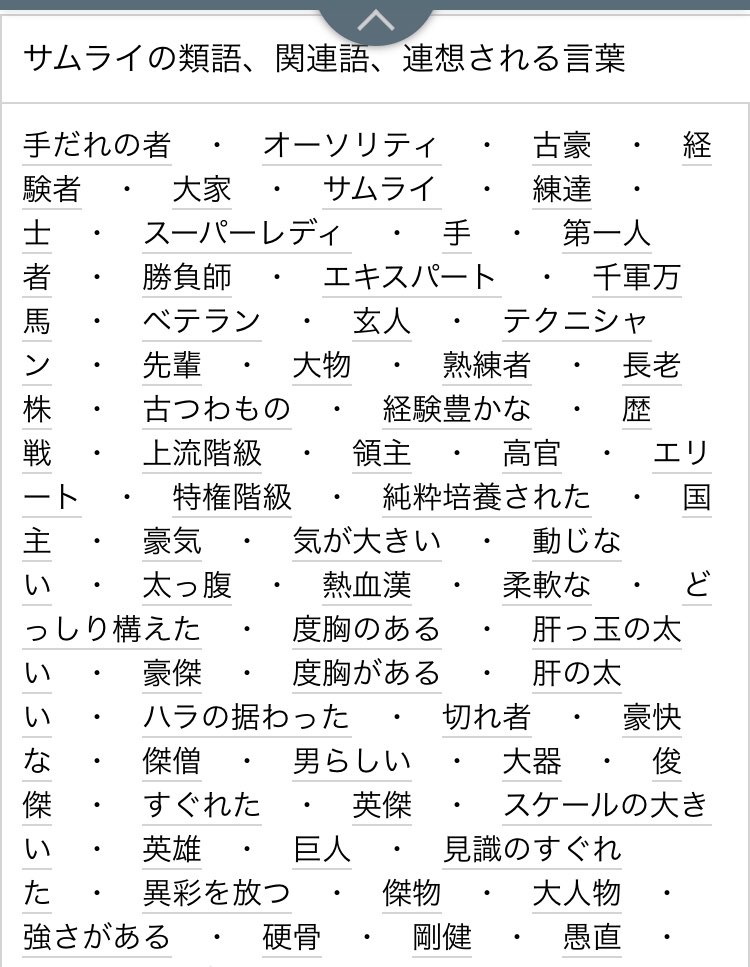 サムライの類語、関連語、連想される言葉
手だれの者 ・ オーソリティ ・ 古豪 ・ 経
験者 ・ 大家 ・ サムライ ・ 練達 ・
士 ・ スーパーレディ ・ 手 ・ 第一人
者 ・ 勝負師 ・ エキスパート ・ 千軍万
馬 ・ ベテラン ・ 玄人 ・ テクニシャ
ン ・ 先輩 ・ 大物 ・ 熟練者 ・ 長老
株 ・ 古つわもの ・ 経験豊かな ・ 歴
戦 ・ 上流階級 ・ 領主 ・ 高官 ・ エリ
ート ・ 特権階級 ・ 純粋培養された ・ 国
主 ・ 豪気 ・ 気が大きい ・ 動じな
い ・ 太っ腹 ・ 熱血漢 ・ 柔軟な ・ ど
っしり構えた ・ 度胸のある ・ 肝っ玉の太
い ・ 豪傑 ・ 度胸がある ・ 肝の太
い ・ ハラの据わった ・ 切れ者 ・ 豪快
な ・ 傑僧 ・ 男らしい ・ 大器 ・ 俊
傑 ・ すぐれた ・ 英傑 ・ スケールの大き
い ・ 英雄 ・ 巨人 ・ 見識のすぐれ
た ・ 異彩を放つ ・ 傑物 ・ 大人物 ・
強さがある ・ 硬骨 ・ 剛健 ・ 愚直 ・